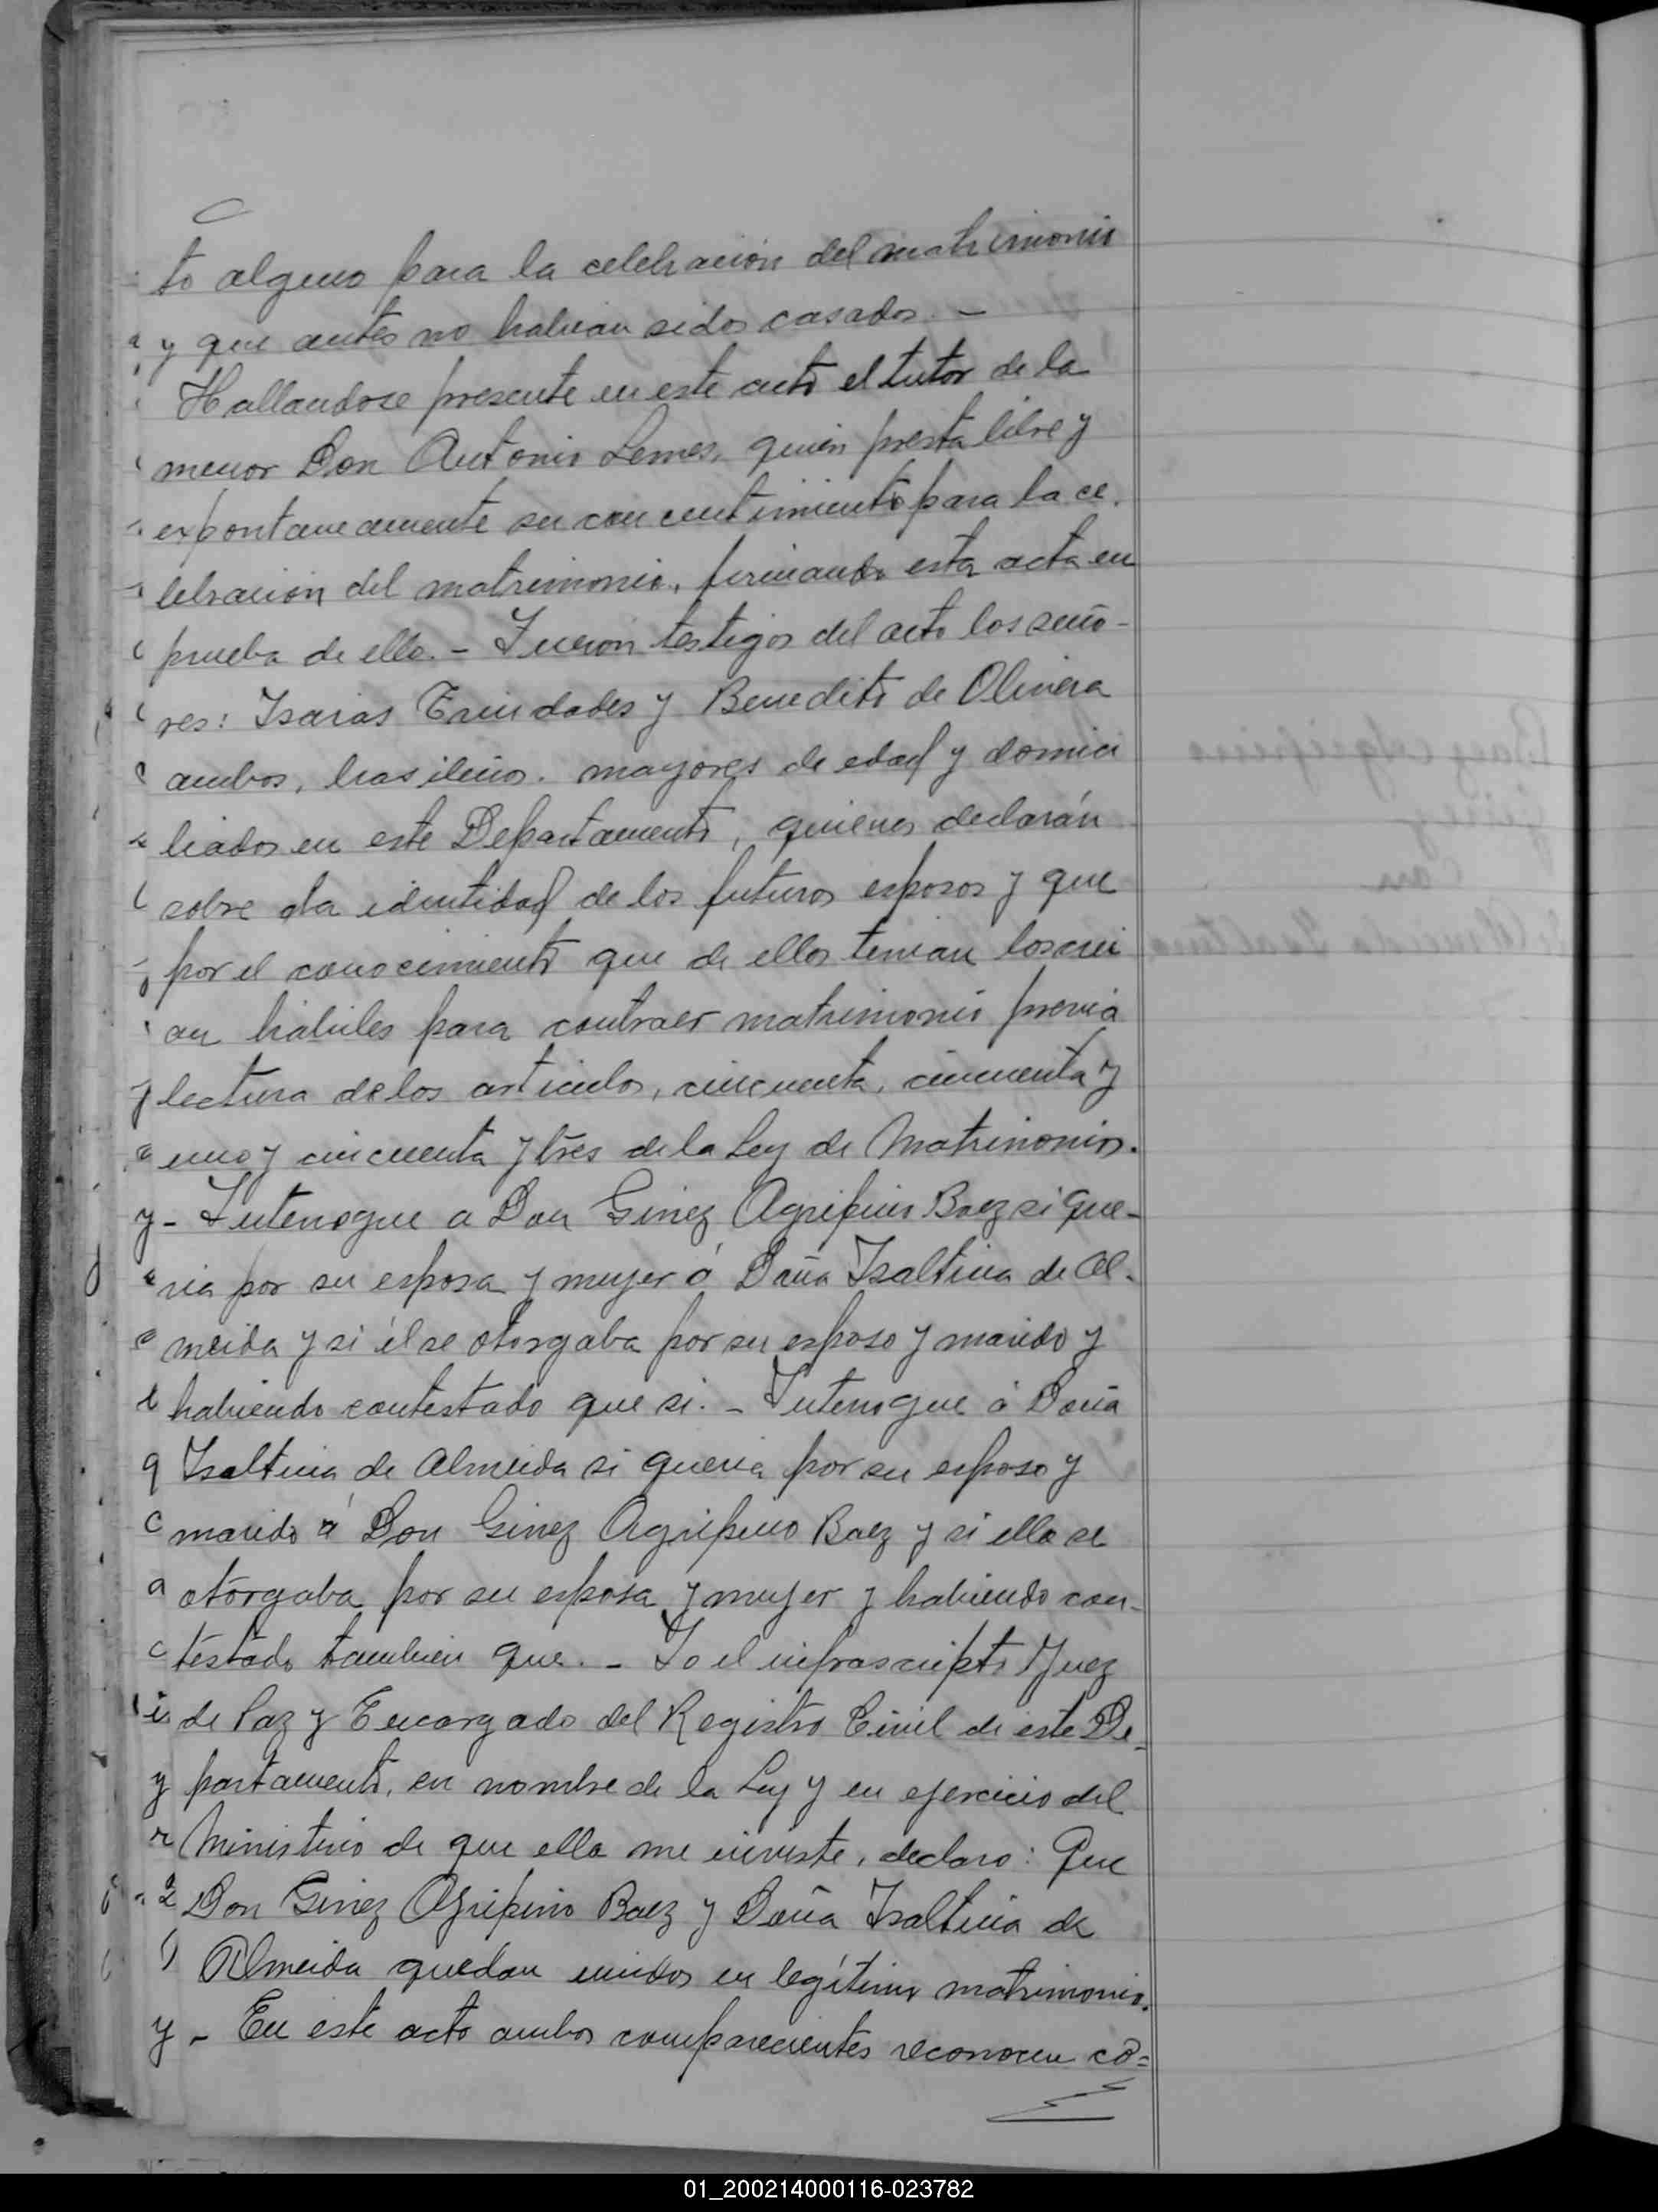 to alguno para la celebracion del matrimonio
y que antes no habian sidos casados. -
Hallandose presente en este acto el tutor de la
menor Don Antonio Lemes, quien presta libre y
expontaneamente su concentimiento para la ce.
lebracion del matrimonio, firmando esta acta en
prueba de ello. - Fueron testigos del acto los seño-
res: Isaias Trindades y Benedito de Olivera
ambos, brasileños. mayores de edad y domici
liados en este Departamento, quienes declarán
sobre la identidad de los futuros esposos y que
por el conocimiento que de ellos tenian los crei
an habiles para contraer matrimonio previa
lectura de los articulos, cincuenta, cincuenta y
uno y cincuenta y tres de la Ley de Matrimonios.
- Interrogue a Don Ginez Agripino Baez si que-
ria por su esposa y mujer á Doña Isaltina de Al-
meida y si él se otorgaba por su esposo y marido y
habiendo contestado que si. - Interrogue á Doña
Isaltina de Almeida si queria por su esposo y
marido á Don Ginez Agripino Baez y si ella se
otorgaba por su esposa y mujer y habiendo con-
testado tambien que. - Yo el infrascripto Juez
de Paz y Encargado del Registro Civil de este De-
partamento, en nombre de la Ley y en ejercicio del
Ministerio de que ella me inviste, declaro: Que
Don Ginez Agripino Baez y Doña Isaltina de
Almeida quedan unidos en legítimo matrimonio.
- En este acto ambos comparecientes reconocen co=
01_200214000116-023782